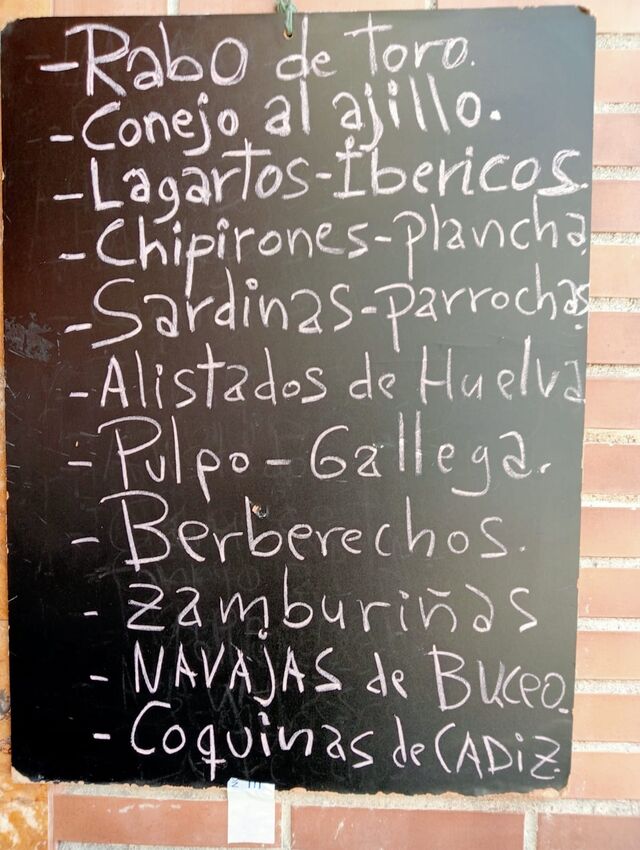 - Rabo de toro.
- Conejo al ajillo.
- Lagartos - Ibericos.
- Chipirones - plancha
- Sardinas - parrochas
- Alistados de Huelva
- Pulpo - Gallega.
- Berberechos.
- Zamburiñas
- NAVAJAS de BUCEO.
- Coquinas de CADiZ.